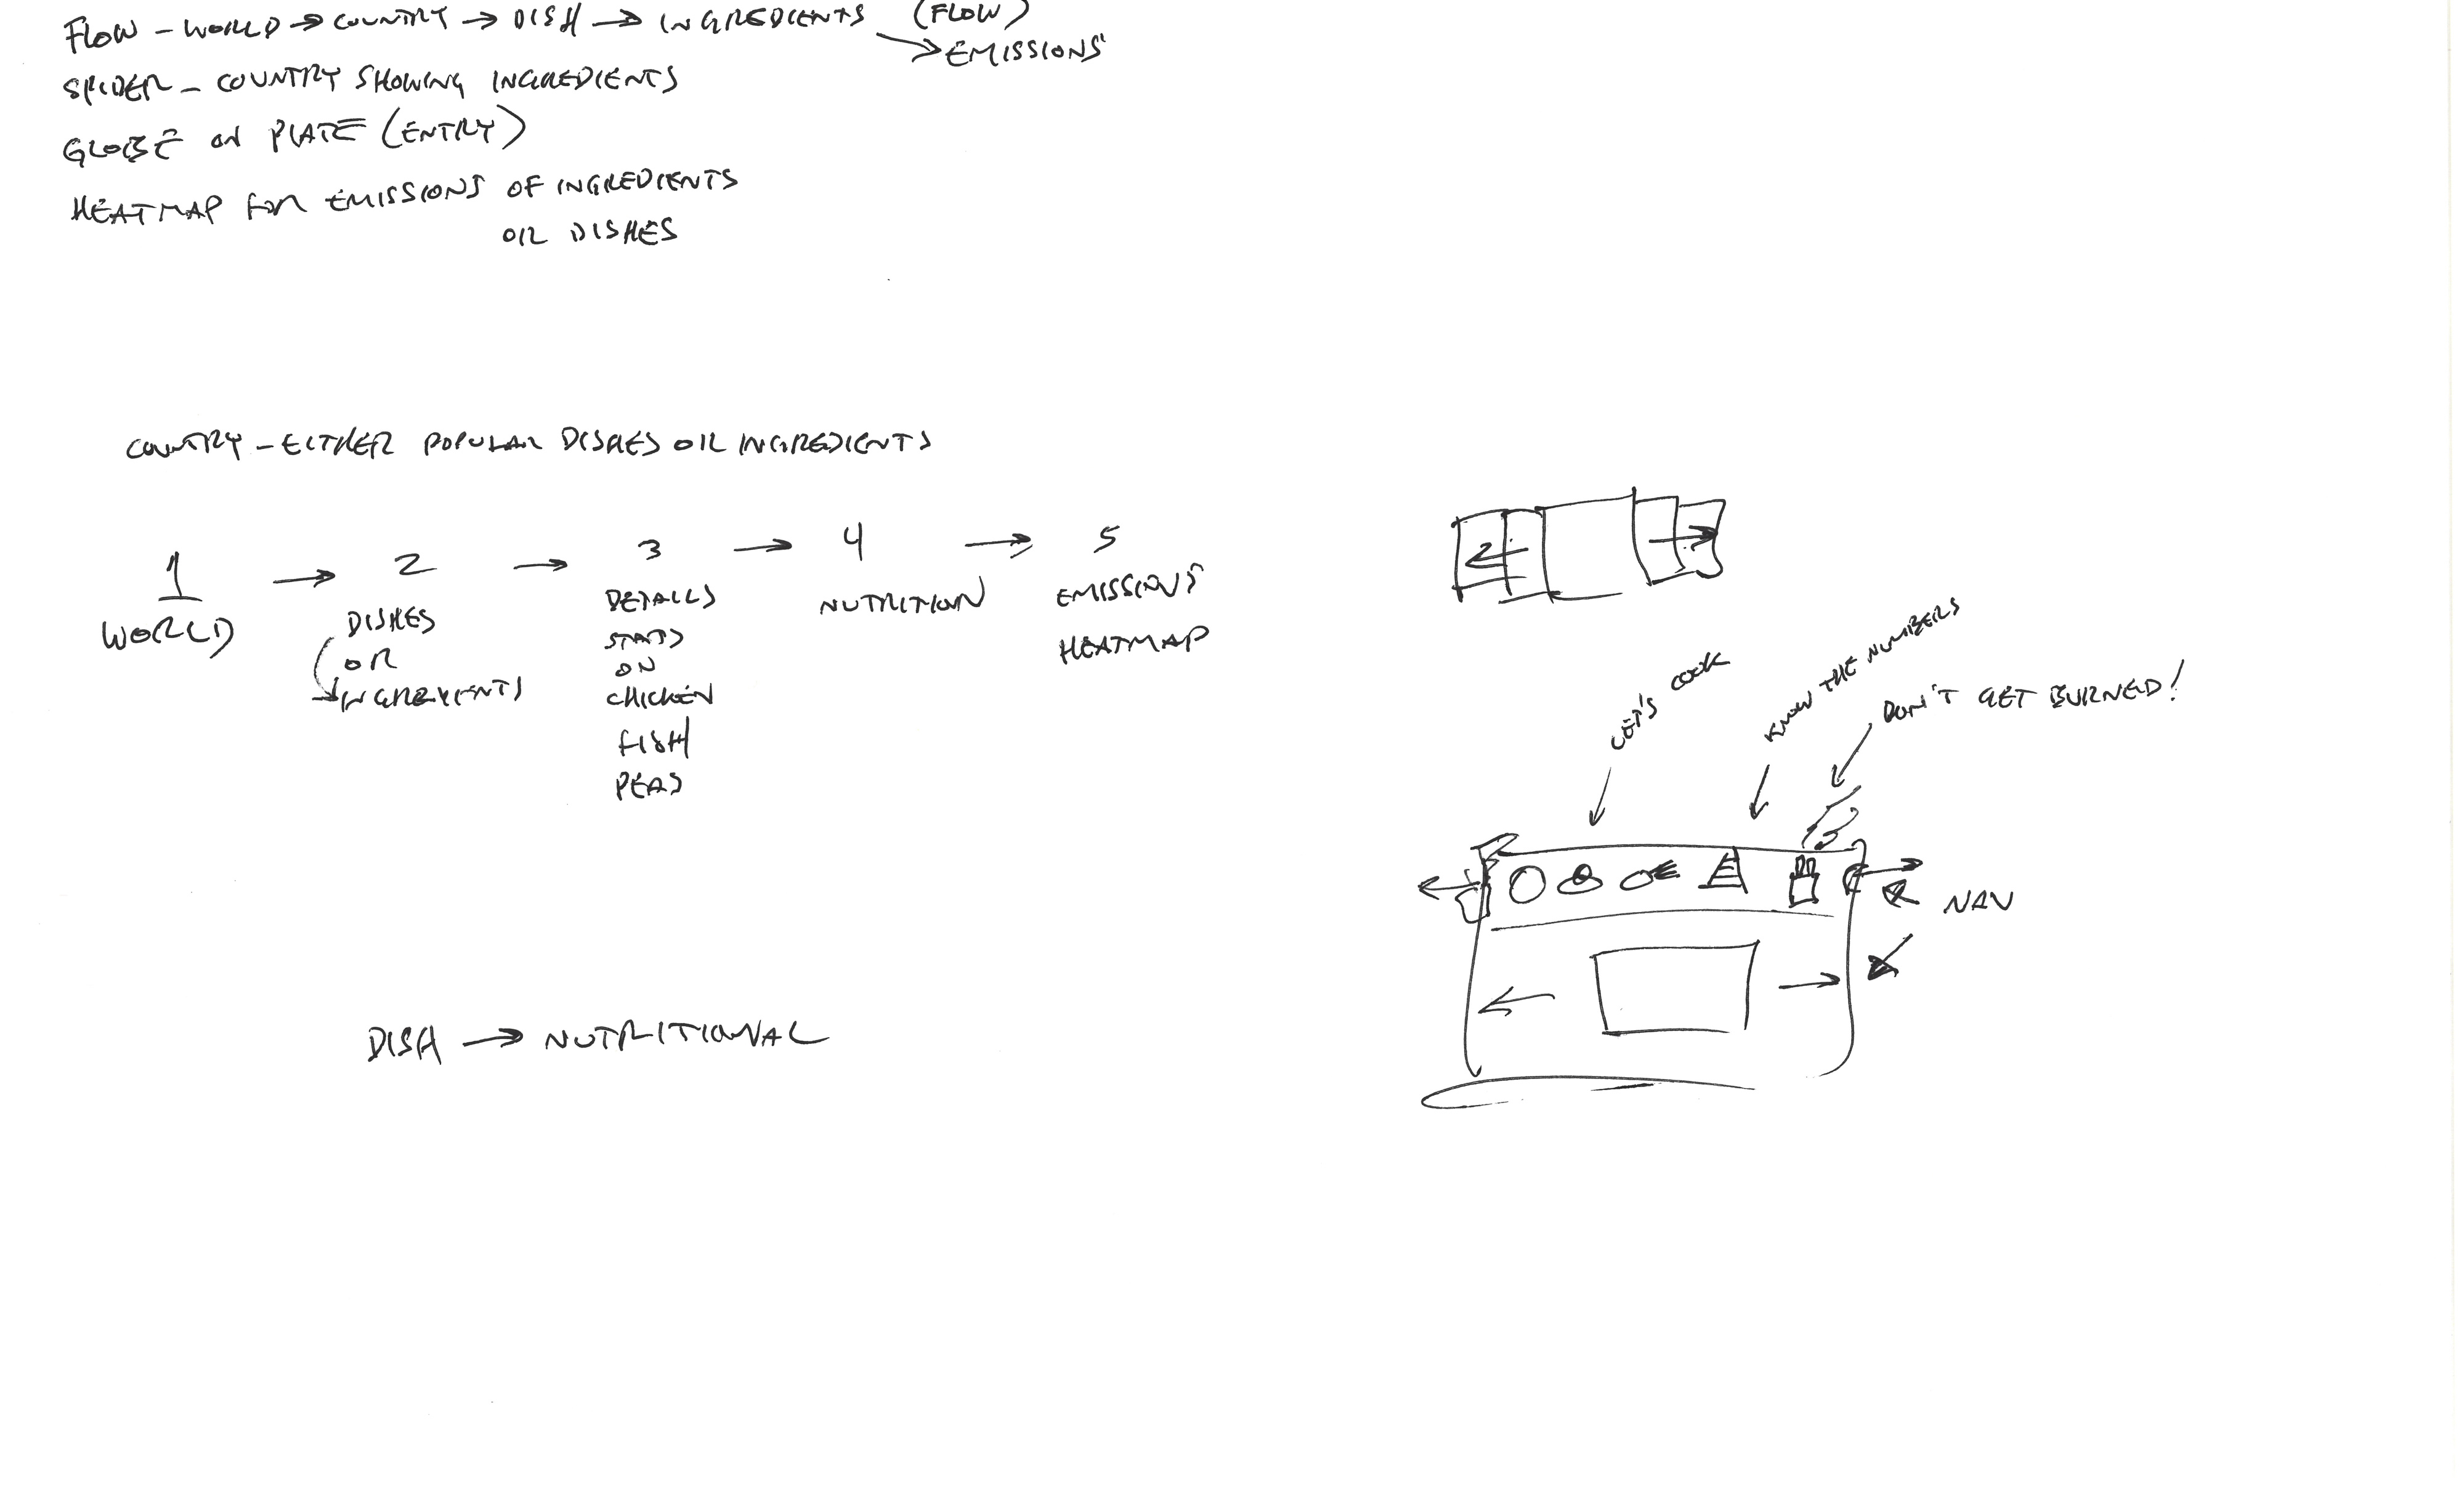 FLOW - WORLD → COUNTRY → DISH → INGREDIENTS (FLOW)
→ EMISSIONS
SPIDER - COUNTRY SHOWING INGREDIENTS
GLOBE ON PLATE (ENTRY)
HEATMAP FOR EMISSIONS OF INGREDIENTS
OR DISHES
COUNTRY - EITHER POPULAR DISHES OR INGREDIENTS
1 → 2 → 3 → 4 → 5
WORLD
DISHES
OR
INGREDIENTS
DETAILS
STATS
ON
CHICKEN
FISH
PEAS
NUTRITION
EMISSIONS
HEATMAP
LET'S COOK
KNOW THE NUMBERS
DON'T GET BURNED!
NAV
DISH → NUTRITIONAL